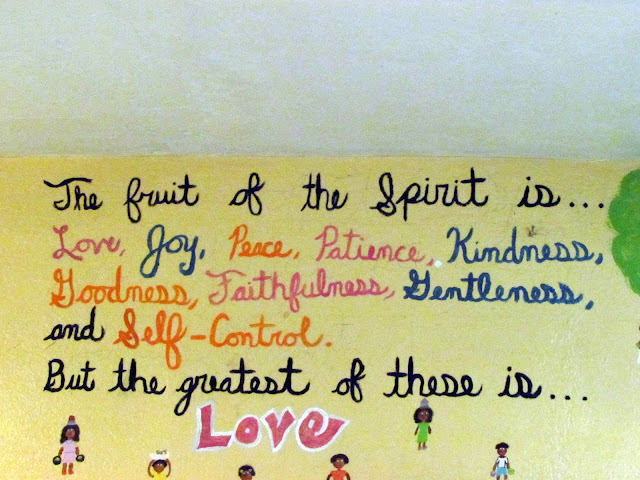 The fruit of the Spirit is...
Love, Joy, Peace, Patience, Kindness,
Goodness, Faithfulness, Gentleness,
and Self-Control.
But the greatest of these is...
Love